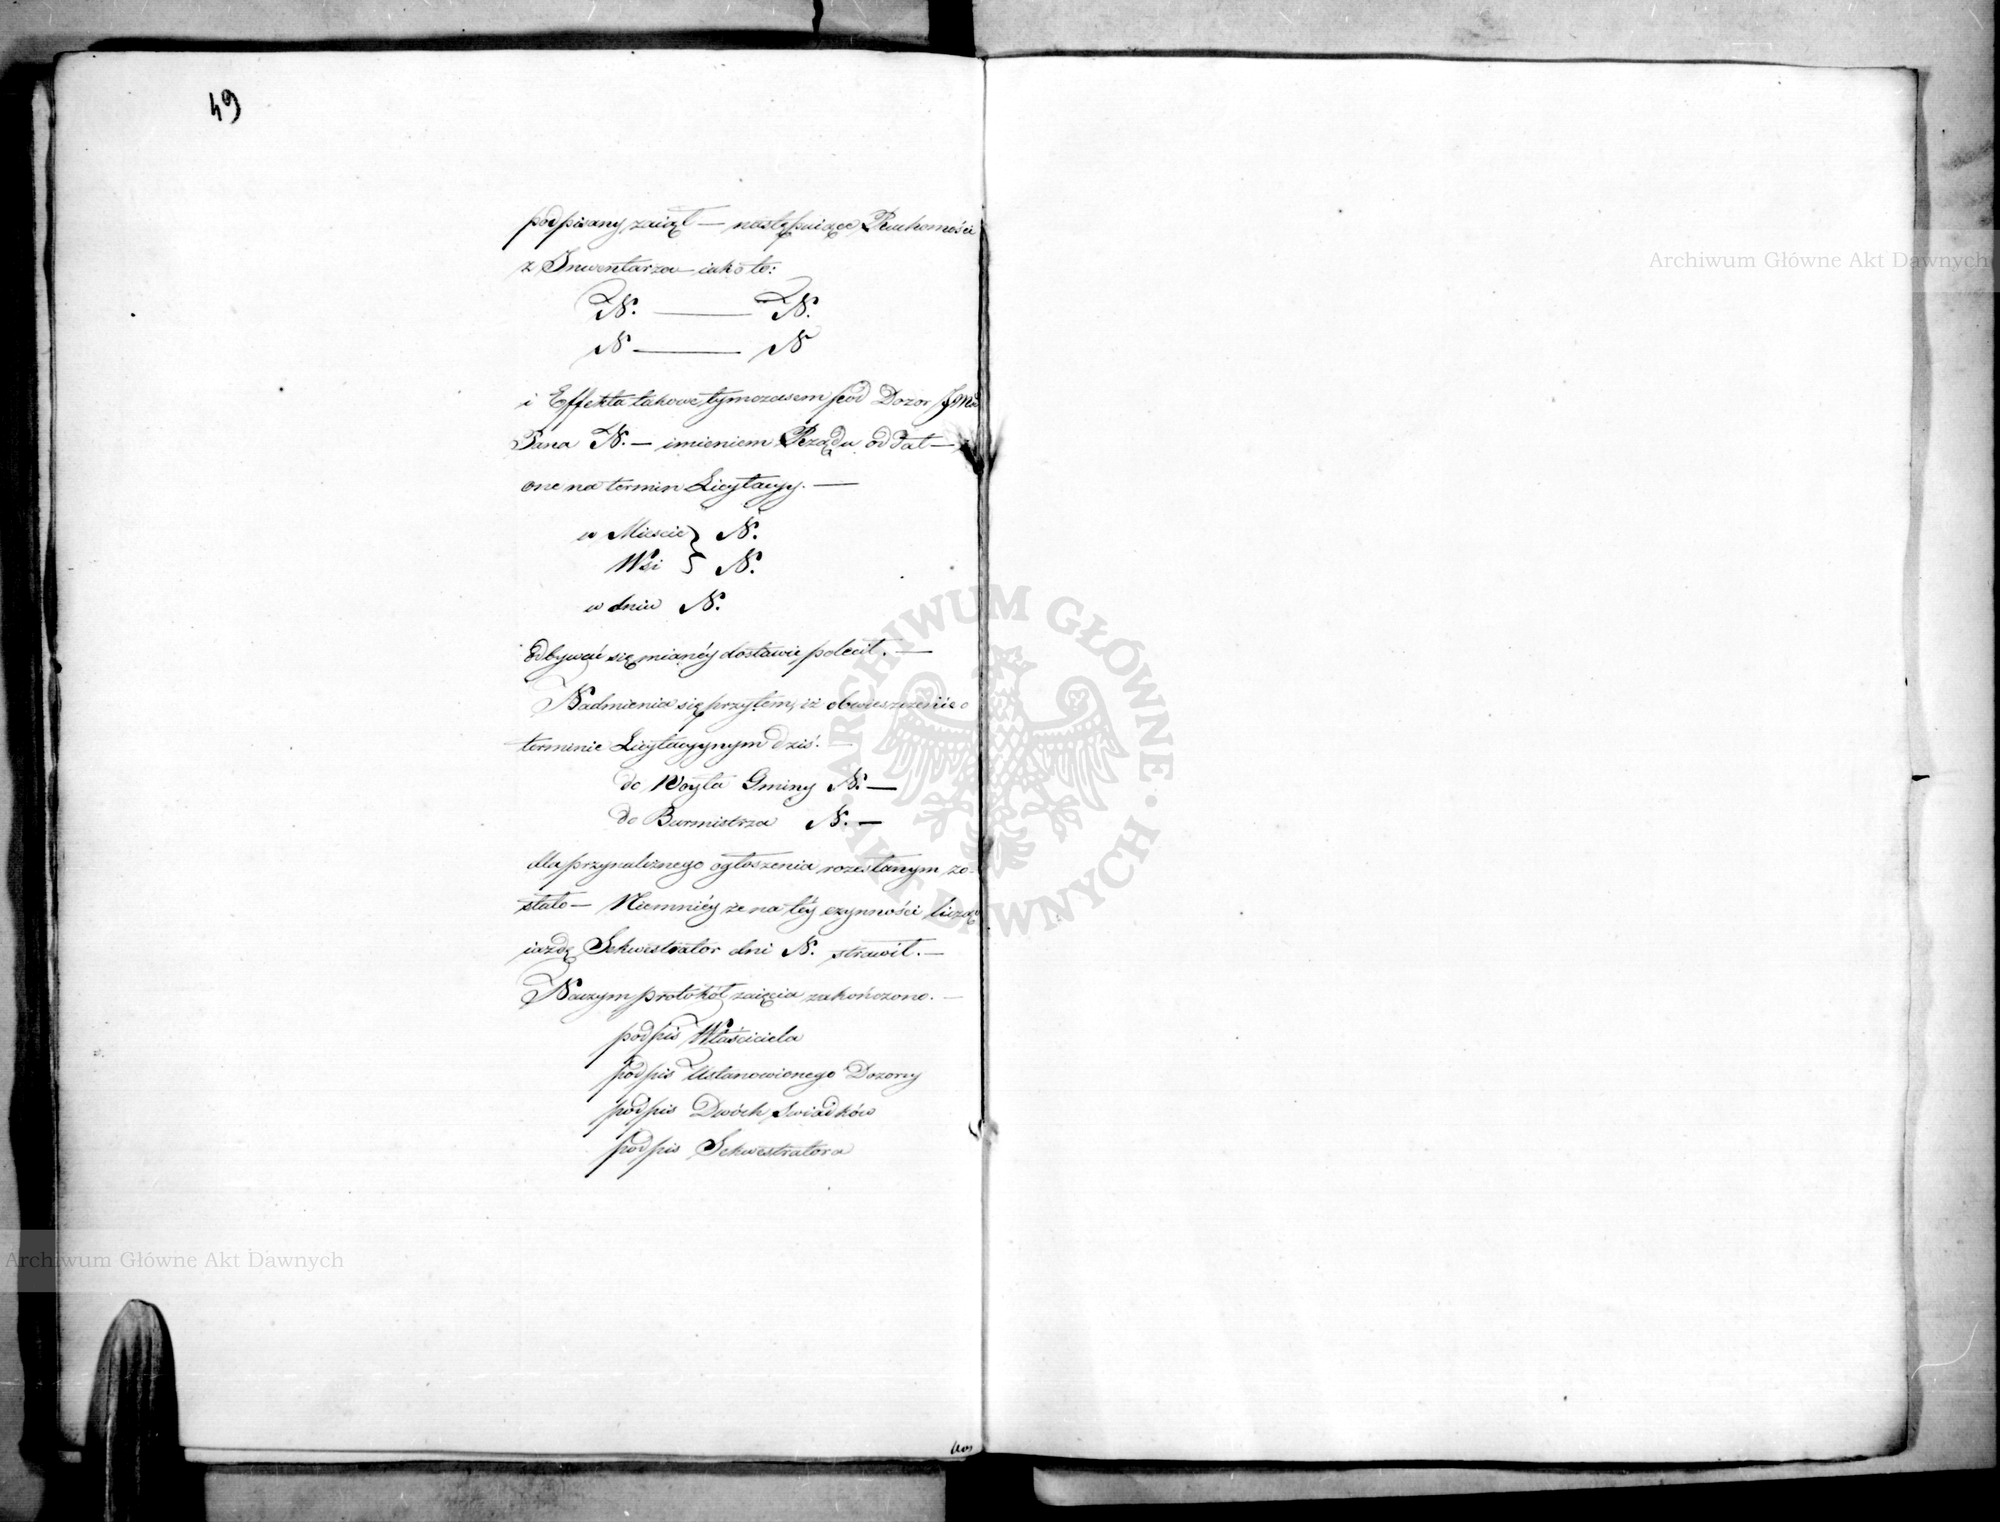 49
podpisany zaiął — następuiące Ruchomości
z Inwentarza iako to:
N. — N.
N — N
i Effekta takowe tymczasem pod Dozor
Pana N. — imieniem Rządu oddał —
one na termin Licytacyy. —
w Mieście } N.
Wsi } N.
w dniu N.
odbywać się maiącéy dostawić polecił. —
Nadmienia się przytem, iż obwieszczenie o
terminie Licytacyynym dziś. —
do Woyta Gminy N. —
do Burmistrza N. —
dla przynależnego ogłoszenia rozesłanym zo-
stało — Niemniéy że na téy czynności licząc
iazdę Sekwestrator dni N. strawił. —
Naczym protokół zaięcia zakończono. —
podpis Właściciela
podpis Ustanowionego Dozorcy
podpis Dwóch Swiadków
podpis Sekwestratora
Archiwum Główne Akt Dawnych
Archiwum Główne Akt Dawnych
ARCHIWUM GŁÓWNE · AKT DAWNYCH ·